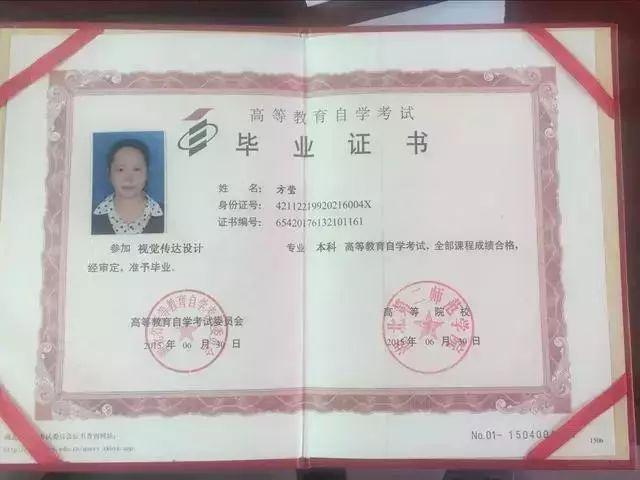 高等教育自学考试
毕业证书
姓名: 方莹
身份证号: 42112219920216004X
证书编号: 65420176132101161
参加 视觉传达设计 专业 本科 高等教育自学考试,全部课程成绩合格,
经审定,准予毕业。
高等教育自学考试委员会
2015 年 06 月 30 日
高等院校
湖北第二师范学院
2015 年 06 月 30 日
No.01- 150400
1506